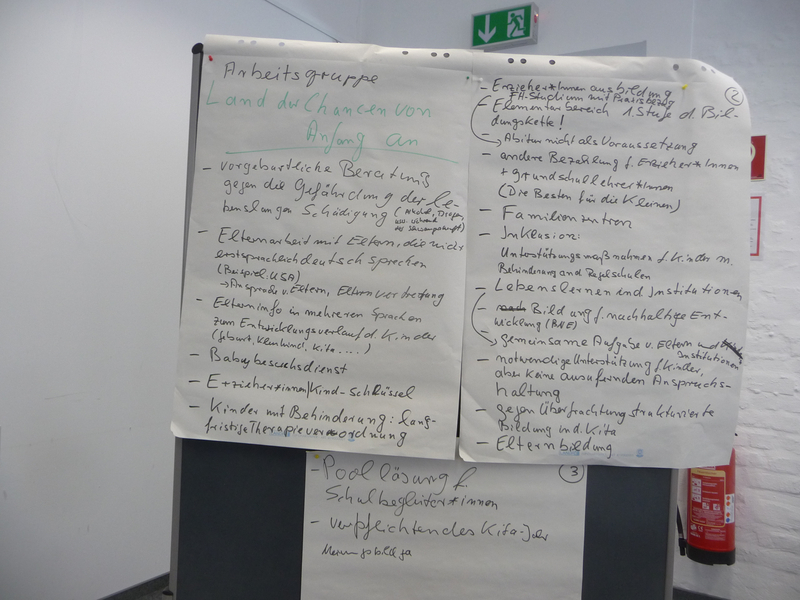 Arbeitsgruppe
Land der Chancen von
Anfang an
- vorgeburtliche Beratung
gegen die Gefährdung der le-
benslangen Schädigung (Alkohol, Drogen,
usw. während
der Schwangerschaft)
- Elternarbeit mit Eltern, die nicht
erstsprachlich deutsch sprechen
(Beispiel: USA)
→ Ansprache v. Eltern, Elternvertretung
- Elterninfo in mehreren Sprachen
zum Entwicklungsverlauf d. Kinder
(Geburt, Kleinkind, Kita....)
- Babybesuchsdienst
- Erzieher*innen/Kind-Schlüssel
- Kinder mit Behinderung: lang-
fristige Therapieverordnung
2
- Erzieher*Innenausbildung
FH-Studium mit Praxisbezug
- Elementarbereich 1. Stufe d. Bil-
dungskette!
→ Abitur nicht als Voraussetzung
- andere Bezahlung f. Erzieher*Innen
+ Grundschullehrer*Innen
(Die Besten für die Kleinen)
- Familienzentren
- Inklusion:
Unterstützungsmaßnahmen f. Kinder m.
Behinderung and Regelschulen
- Lebenslernen in d. Institutionen
- Bildung f. nachhaltige Ent-
wicklung (BNE)
→ gemeinsame Aufgabe v. Eltern und
Institutionen
- notwendige Unterstützung f. Kinder,
aber keine ausufernden Anspruchs-
haltung
- gegen Überfrachtung strukturierte
Bildung in d. Kita
- Elternbildung
3
- Poollösung f.
Schulbegleiter*innen
- verpflichtendes Kita-Jahr
Meinungsbild ja